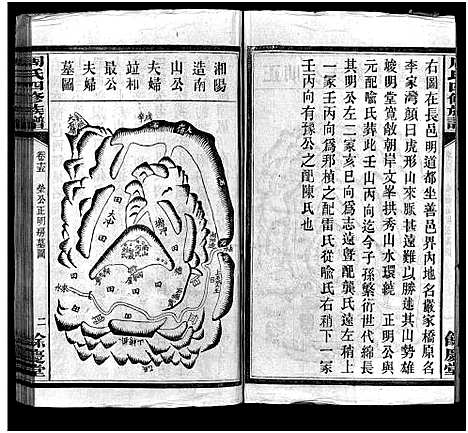 周氏四修族譜
右圖在長邑明道都坐善邑界內地名嚴家橋原名
李家灣顏曰虎形山來脈甚遠以勝達其山勢雄
峻明堂寬敞朝岸文峯拱秀山水環繞 正明公與
元配喩氏葬此壬山丙向迄今子孫繁衍世代綿長
其明公左二家亥巳向爲志遠曁配龔氏遠左稍上
一冢壬丙向爲那楨之配雷氏從喩氏右斜下一冢
壬丙向有豫公之配陳氏也
餘慶堂
湘陽造南山公夫婦竝和最公夫婦墓圖
田
田
田
田
田
水來
周氏四修族譜
卷十五
坐公正明房墓圖
二
餘慶堂